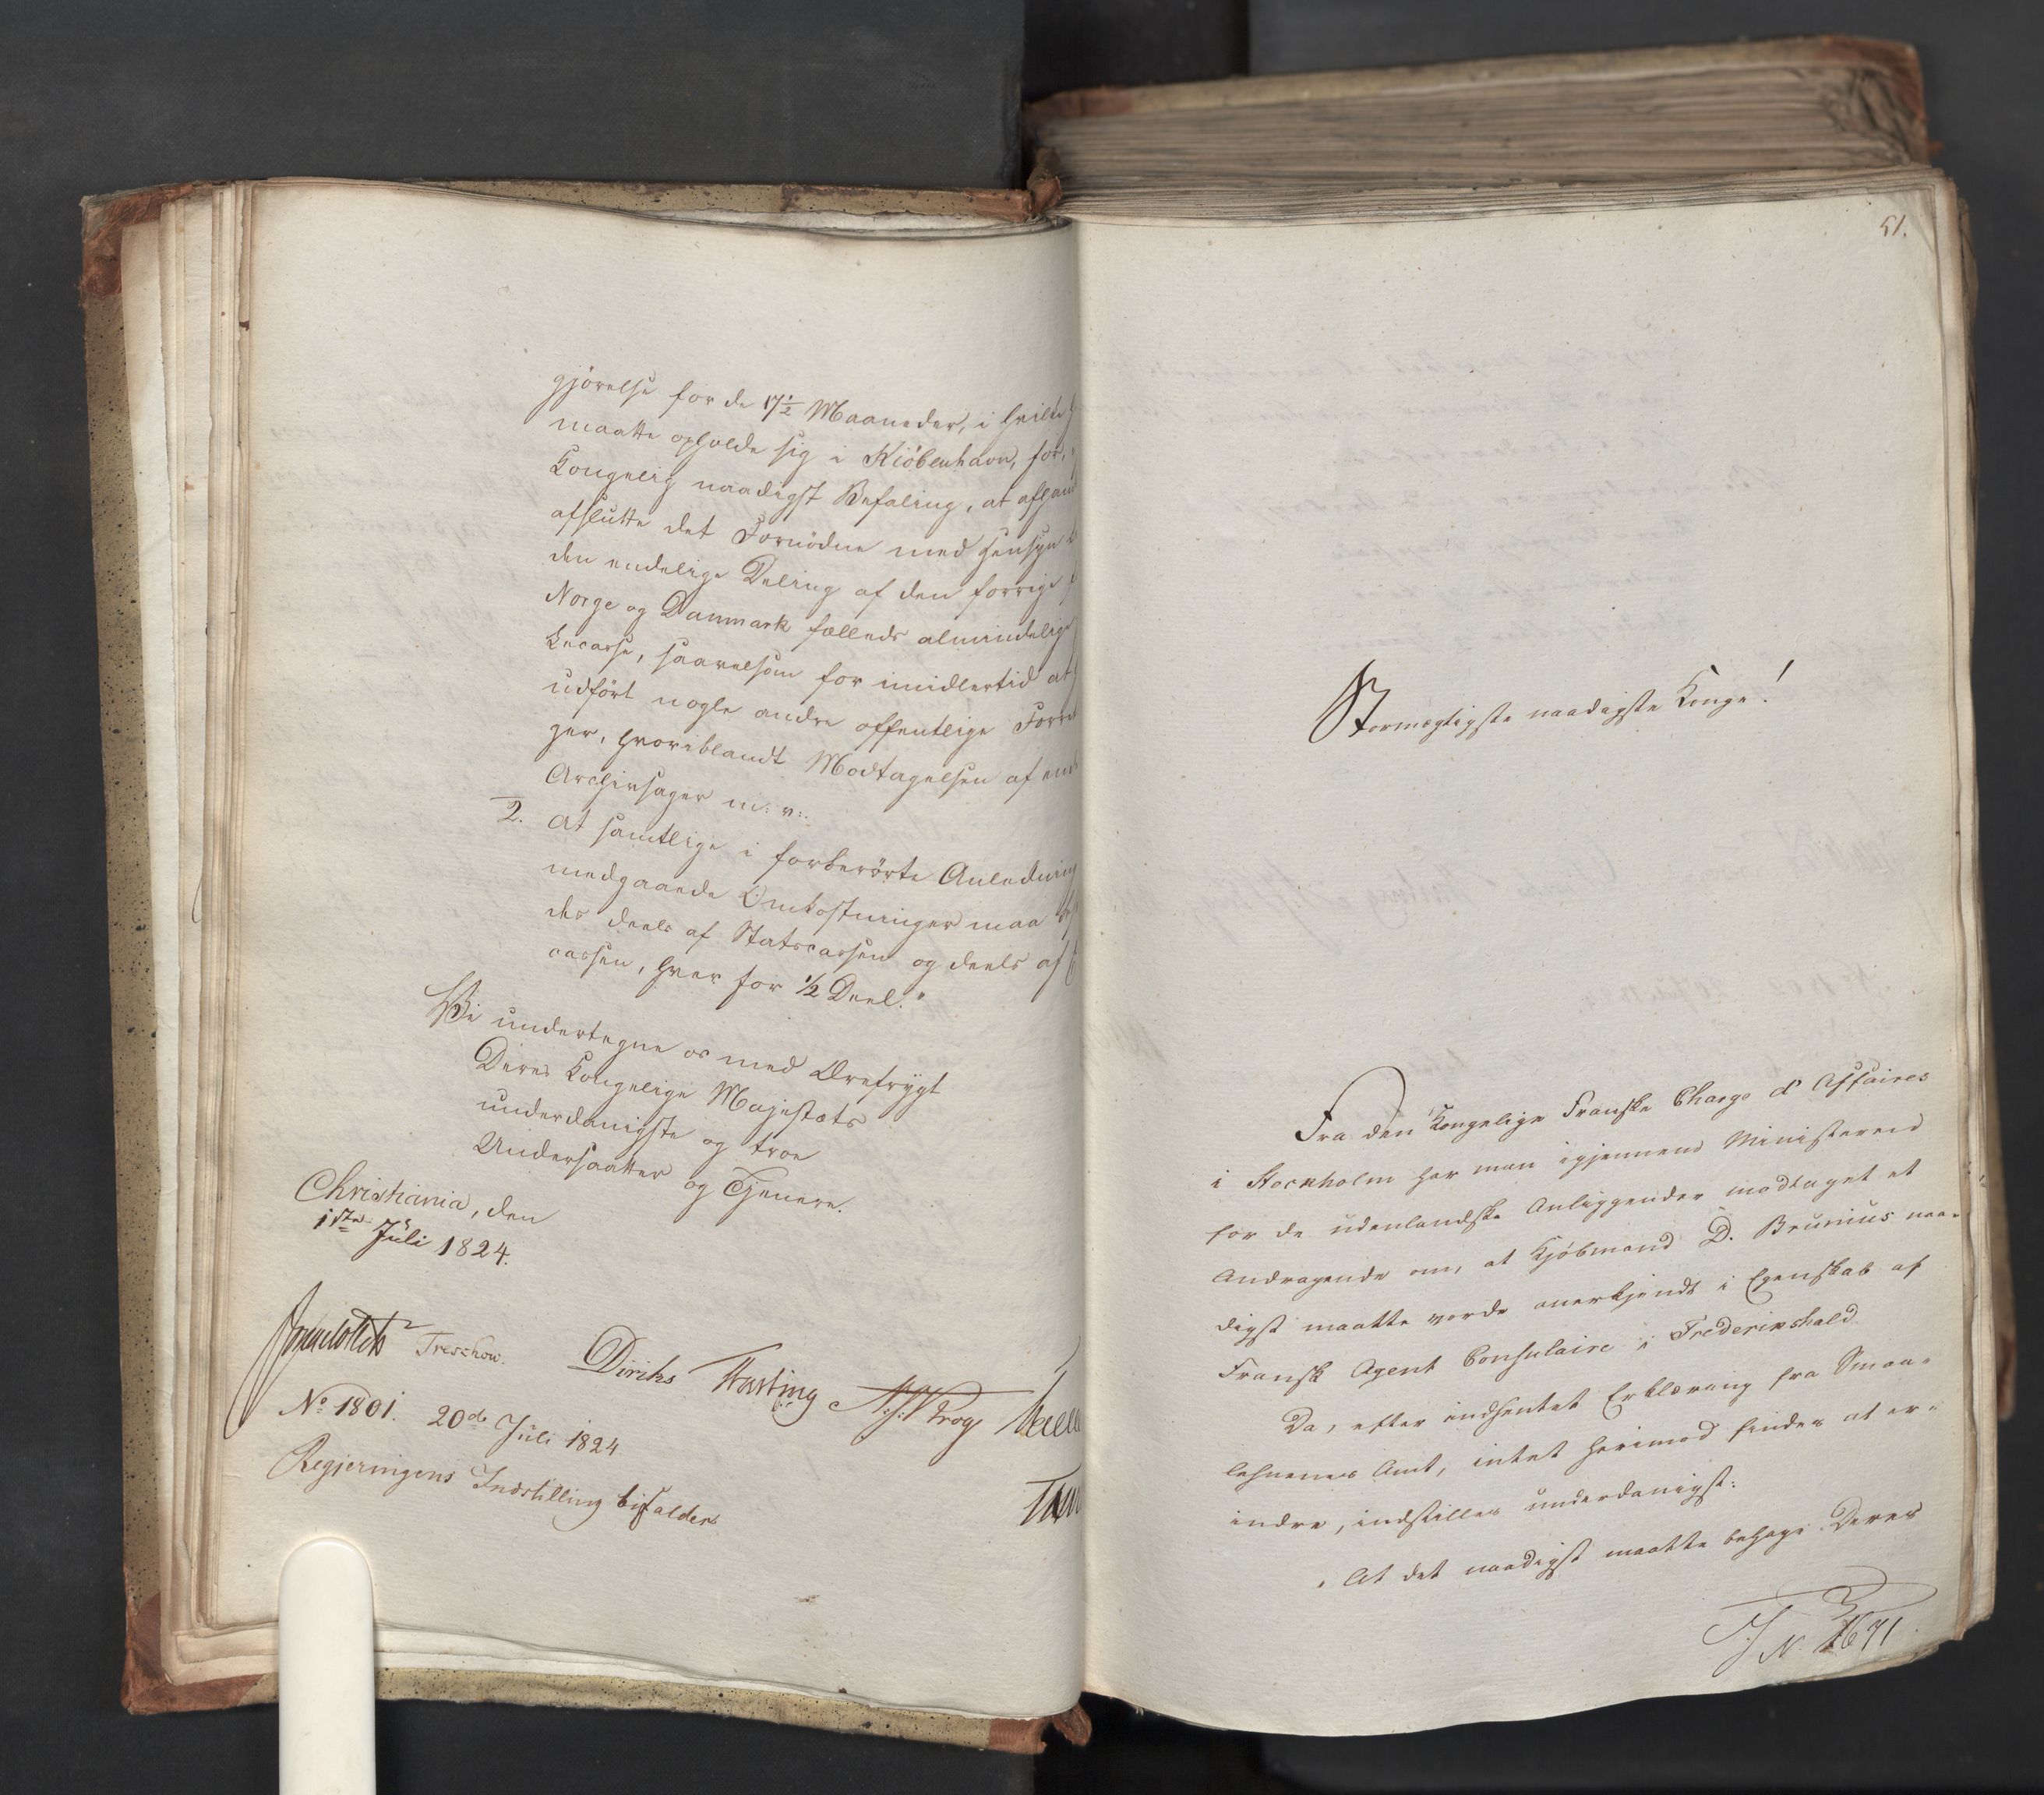 gjörelse for de 17½ Maaneder, i hvilke
maatte opholde sig i Kiöbenhavn, for,
Kongelig naadigst Befaling, at afhand
afslutte det Fornödne med Hensyn
den endelige Deling af den forrige
Norge og Danmark fælleds almindelige
kecasse, saavelsom for imidlertid at
udfört nogle andre offentlige Forret
ger, hvoriblandt Modtagelsen af en
Archivsager m: v:.
2. At samtlige i forberörte Anledning
medgaaende Omkostninger maa
des deels af Statscassen og deels af
cassen, hver for ½ Deel."
Vi undertegne os med Ærefrygt
Deres Kongelige Majestæts
underdanigste og troe
Undersaatter og Tjenere.
Christiania, den
1ste Juli 1824.
Treschow. Diriks Hasting
No 1801. 20de Juli 1824
Regjeringens Indstilling bifaldes
51.
Stormægtigste naadigste Konge!
Fra den Kongelige Franske Charge d'Affaires
i Stockholm har man igjennem Ministeren
for de udenlandske Anliggender modtaget et
Andragende om, at Kjöbmand D. Brunius naa-
digst maatte vorde anerkjendt i Egenskab af
Fransk Agent Consulaire i Frederikshald.
Da, efter indhentet Erklæring fra Smaa-
lehnenes Amt, intet herimod findes at er-
indre, indstilles underdanigst:
"At det naadigst maatte behage Deres
J N. 1671